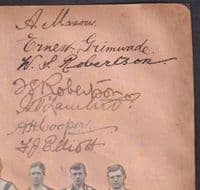 A Mason.
Ernest Grimwade.
W. S. Robertson.
Robertson
A H Cooper
F J Elliott